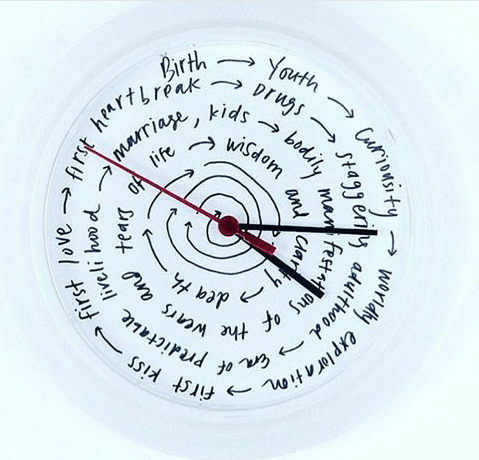 Birth → Youth → Curiosity → worldly exploration → first kiss → first love →
first heartbreak → drugs → adulthood → Era of predictable livelihood →
marriage, kids → bodily manifestations of the wears and tears of life →
wisdom and clarity → death →